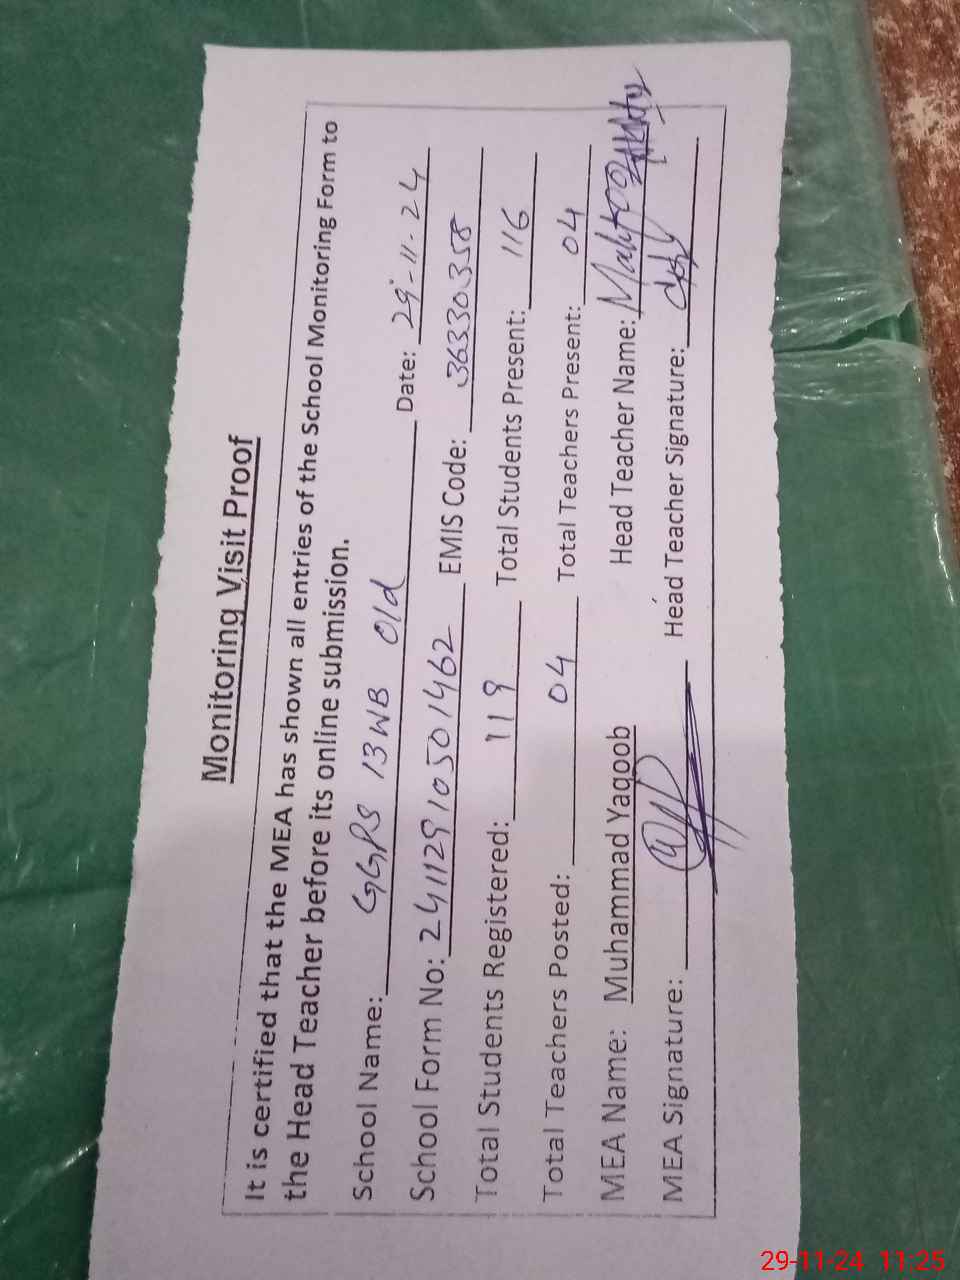 Monitoring Visit Proof
It is certified that the MEA has shown all entries of the School Monitoring Form to
the Head Teacher before its online submission.
School Name: GGPS 13WB Old Date: 29-11-24
School Form No: 24112910501462 EMIS Code: 36330358
Total Students Registered: 119 Total Students Present: 116
Total Teachers Posted: 04 Total Teachers Present: 04
MEA Name: Muhammad Yaqoob Head Teacher Name:
MEA Signature: Head Teacher Signature:
29-11-24 11:25